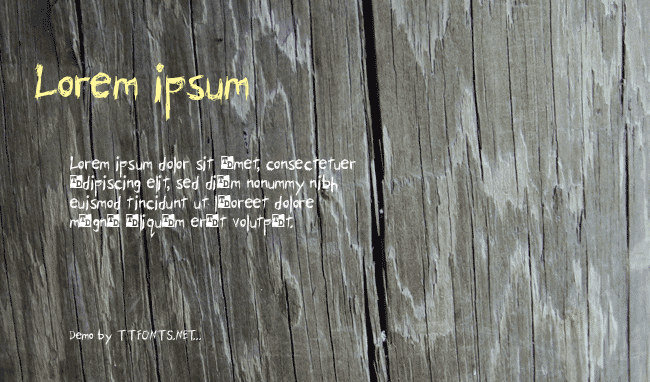 Lorem ipsum
Lorem ipsum dolor sit □met, consectetuer
□dipiscing elit, sed di□m nonummy nibh
euismod tincidunt ut l□oreet dolore
m□gn□ □liqu□m er□t volutp□t.
Demo by TTFONTS.NET...